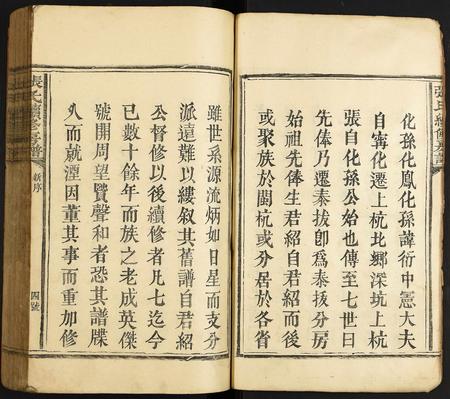 張氏續修族譜
化孫化鳳化孫諱衍中憲大夫
自寧化遷上杭北鄉深坑上杭
張自化孫公始也傳至七世曰
先俸乃遷泰拔卽為泰拔分房
始祖先俸生君紹自君紹而後
或聚族於閩杭或分居於各省
雖世系源流炳如日星而支分
派遠難以縷叙其舊譜自君紹
公督修以後續修者凡七迄今
已數十餘年而族之老成英傑
號開周望贒聲和者恐其譜牒
久而就湮因董其事而重加修
張氏續修族譜
新序
四號